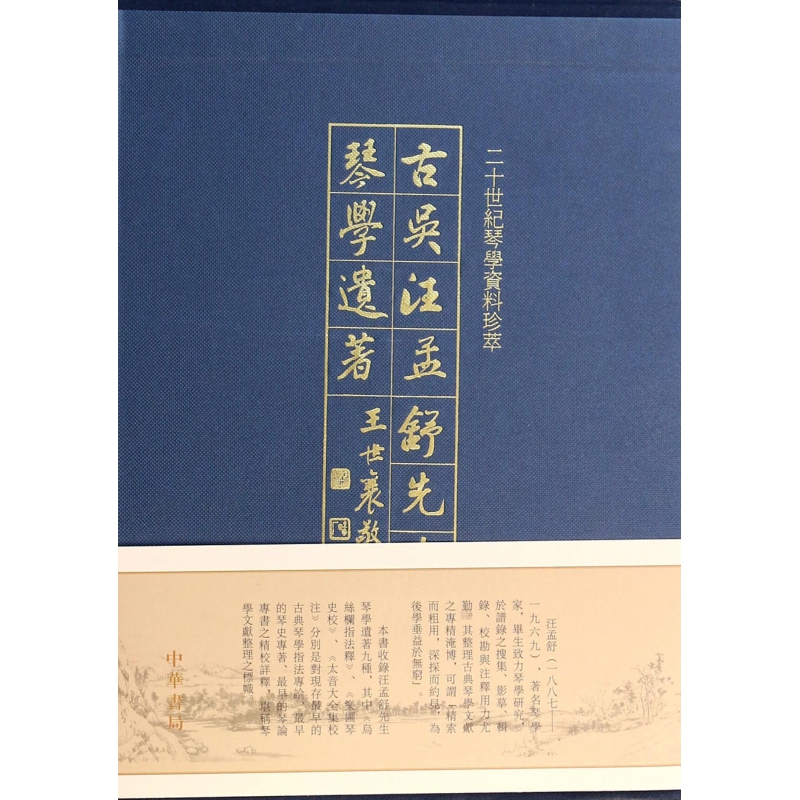 二十世紀琴學資料珍萃
古吳汪孟舒先
琴學遺著
王世襄敬
汪孟舒（一八八七—
一九六九），著名琴學
家，畢生致力琴學研究，
於譜錄之搜集、影摹、輯
錄、校勘與注釋用力尤
勤，其整理古典琴學文獻
之專精淹博，可謂「精索
而粗用，深探而約見，為
後學垂益於無窮」。
本書收錄汪孟舒先生
琴學遺著九種，其中《烏
絲欄指法釋》、《樂圃琴
史校》、《太音大全集校
注》分別是對現存最早的
古典琴學指法專論、最早
的琴史專著、最早的琴論
專書之精校詳釋，堪稱琴
學文獻整理之標幟。
中華書局